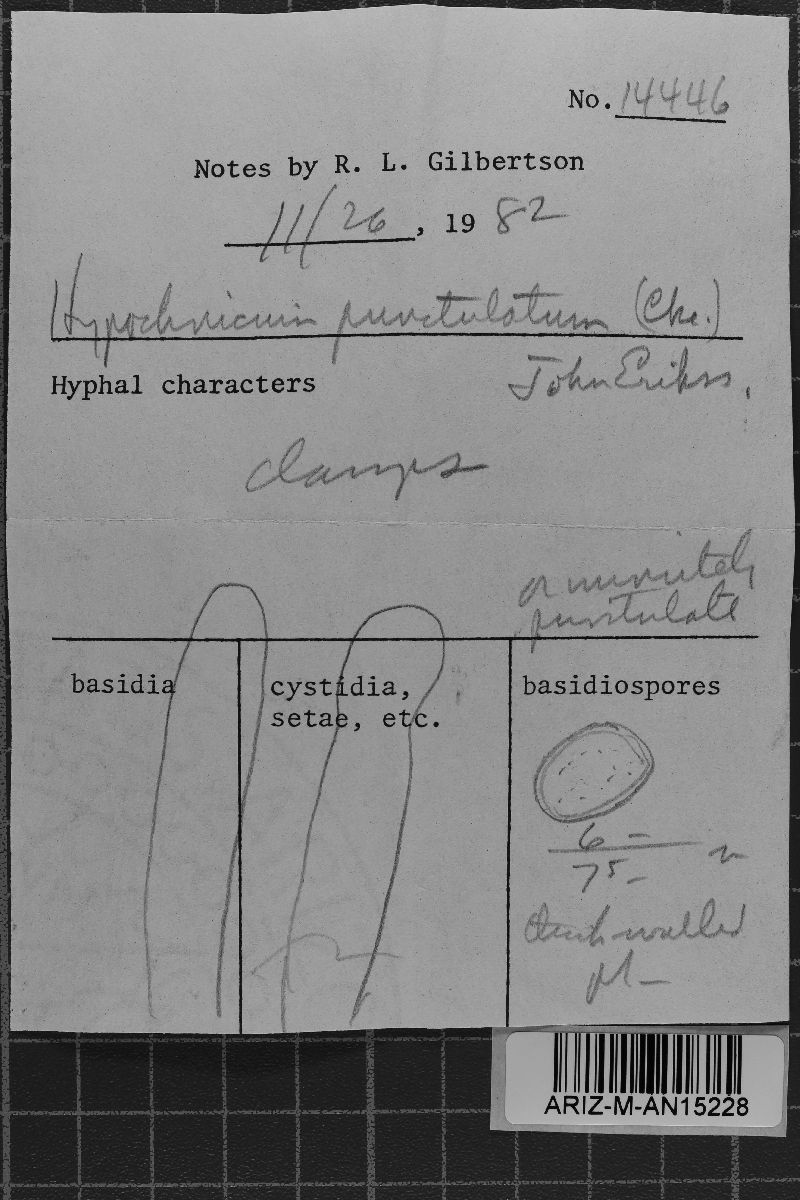 No. 14446
Notes by R. L. Gilbertson
11/26, 19 82
Hypochnicium punctulatum (Cke.)
Hyphal characters John Erikss.
clamps
minutely
punctulate
basidia
cystidia,
setae, etc.
basidiospores
6 -
75 -
thick-walled
ARIZ-M-AN15228